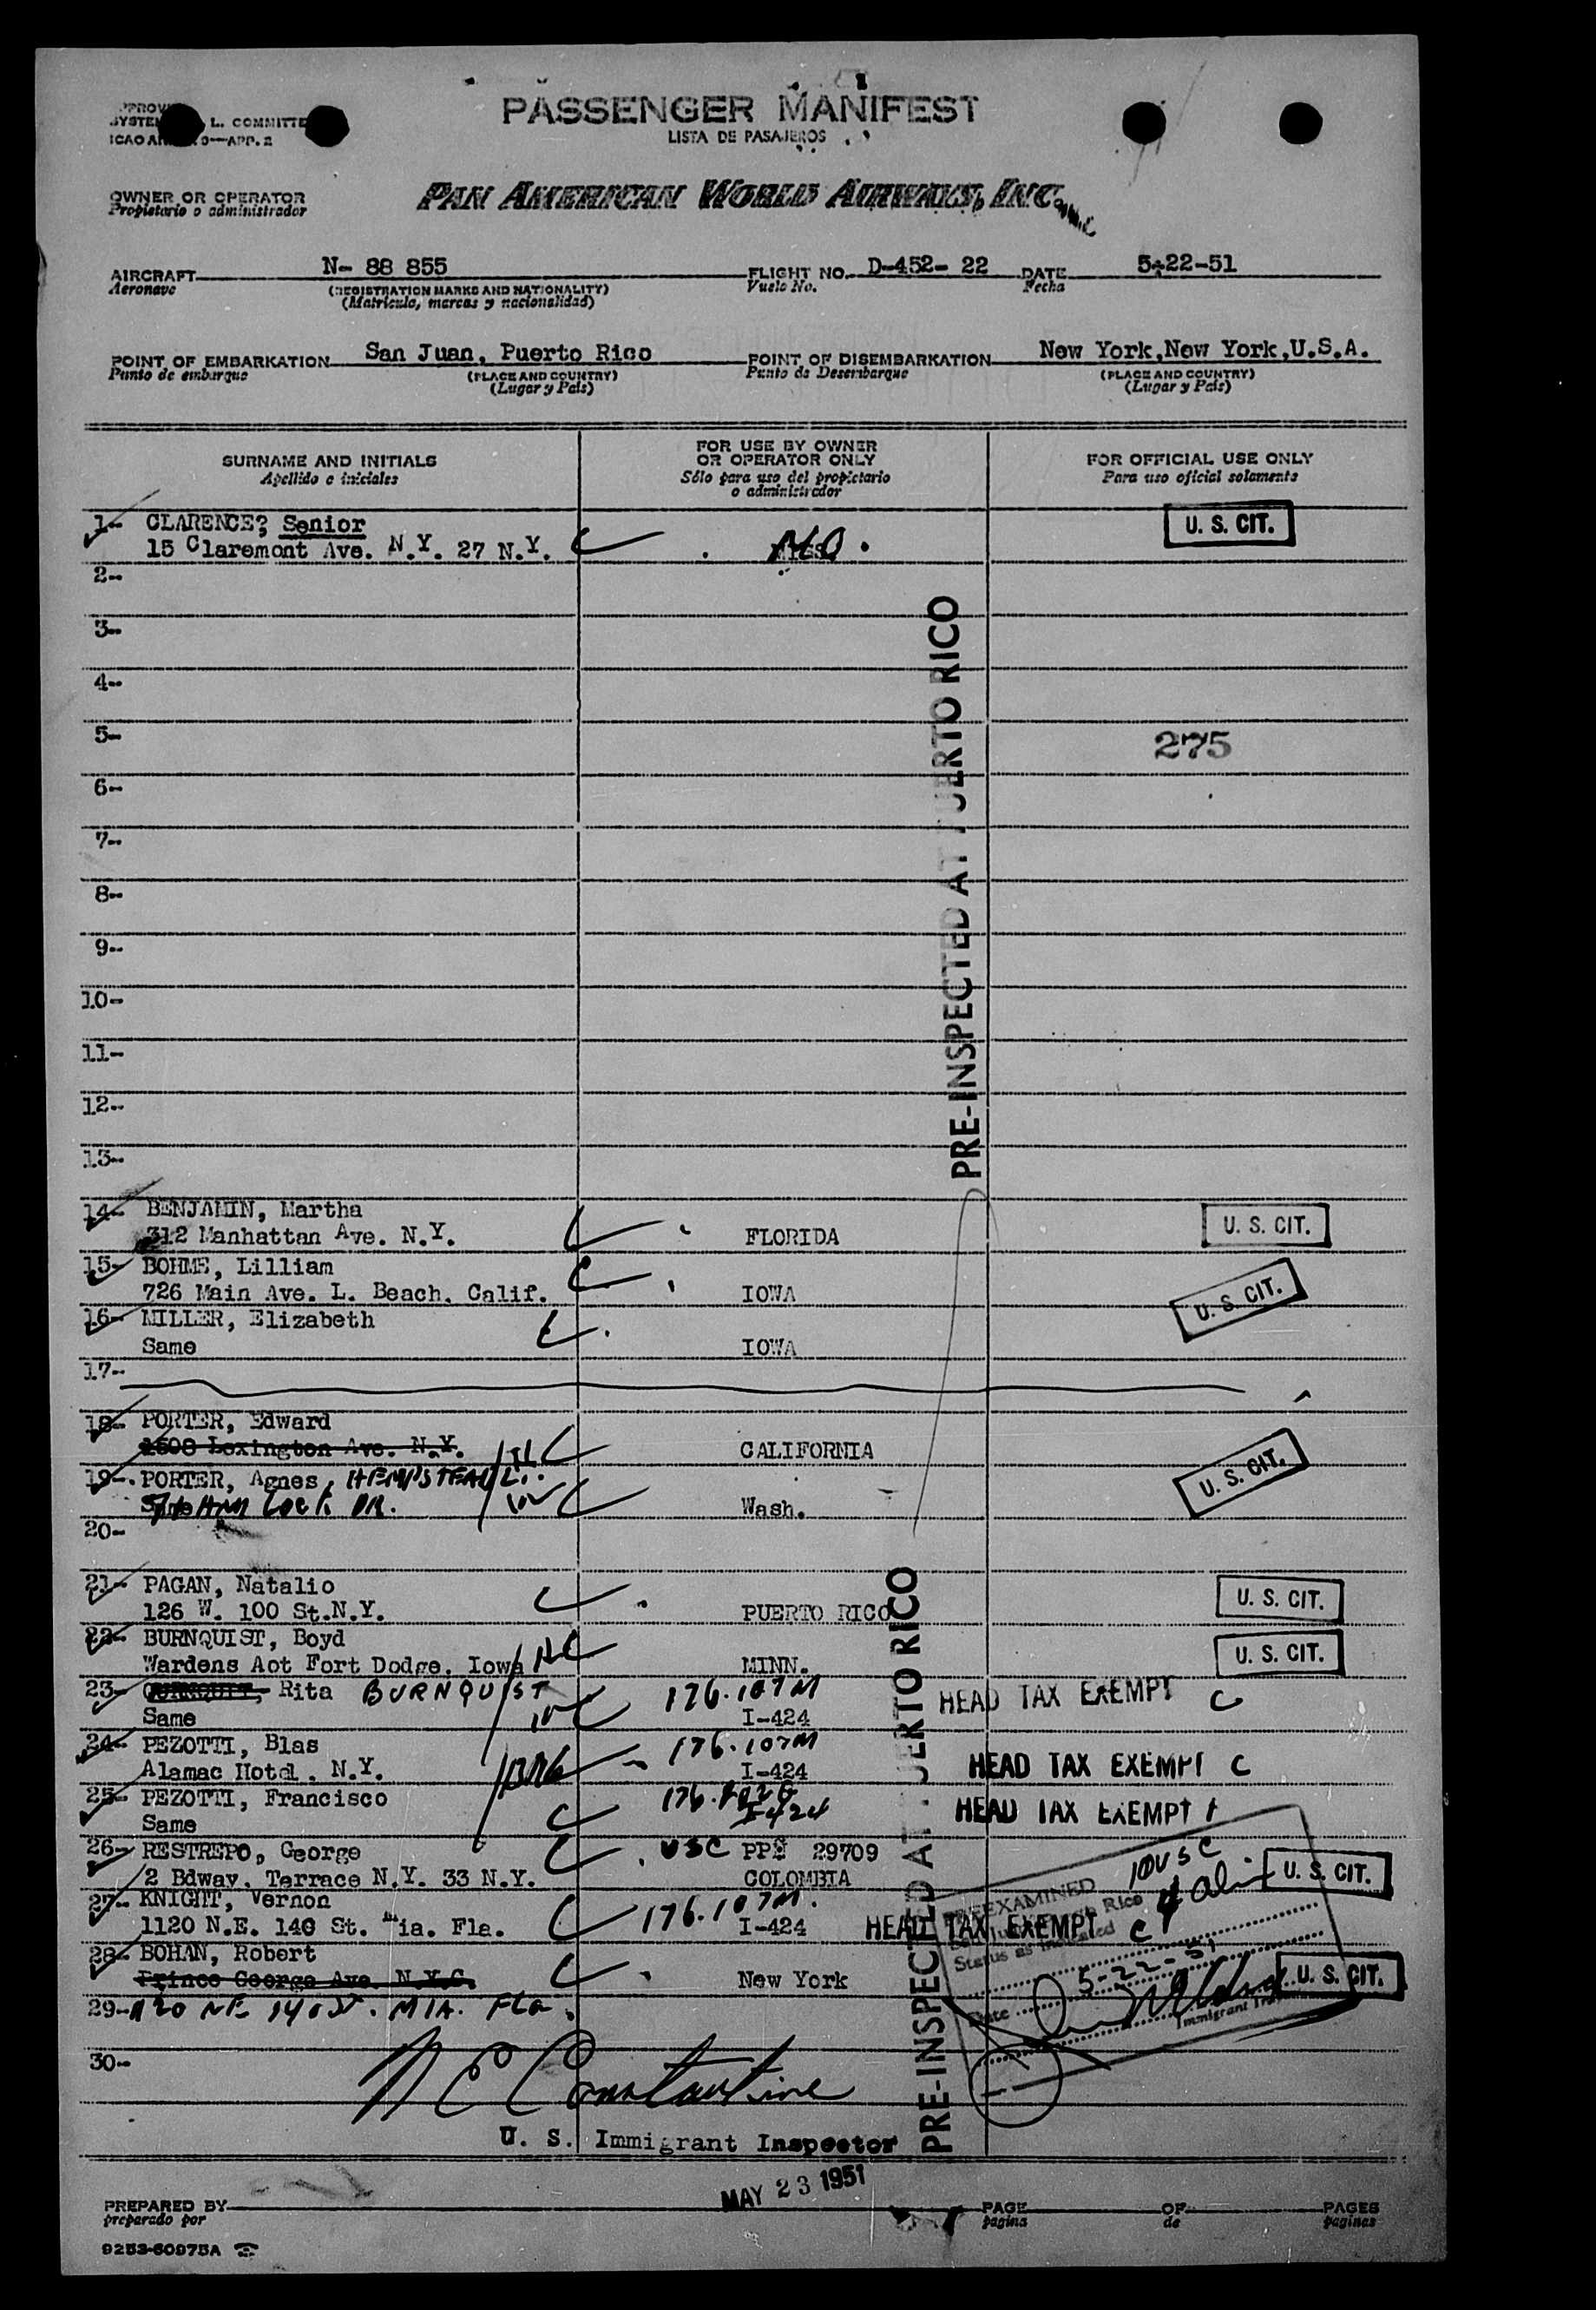 PASSENGER MANIFEST
LISTA DE PASAJEROS
L. COMMITTE
OWNER OR OPERATOR
Propietario o administrador
PAN AMERICAN WORLD AIRWAYS, INC.
AIRCRAFT N- 88 855 FLIGHT NO. D-452- 22 DATE 5-22-51
Aeronave (REGISTRATION MARKS AND NATIONALITY) Vuelo No. Fecha
(Matricula, marcas y nacionalidad)
POINT OF EMBARKATION San Juan, Puerto Rico POINT OF DISEMBARKATION New York,New York,U.S.A.
Punto de embarque (PLACE AND COUNTRY) Punto de Desembarque (PLACE AND COUNTRY)
(Lugar y País) (Lugar y País)
SURNAME AND INITIALS FOR USE BY OWNER OR OPERATOR ONLY FOR OFFICIAL USE ONLY
Apellido e iniciales Sólo para uso del propietario o administrador Para uso oficial solamente
1- CLARENCE, Senior U. S. CIT.
15 Claremont Ave. N.Y. 27 N.Y. MO.
2-
3-
4-
5- 275
6-
7-
8-
9-
10-
11-
12-
13-
PRE-INSPECTED AT PUERTO RICO
14- BENJAMIN, Martha U. S. CIT.
312 Manhattan Ave. N.Y. FLORIDA
15- BOHME, Lilliam
726 Main Ave. L. Beach. Calif. IOWA U. S. CIT.
16- MILLER, Elizabeth
Same IOWA
17-
18- PORTER, Edward
1508 Lexington Ave. N.Y. CALIFORNIA
19- PORTER, Agnes, HEMPSTEAD L.I. U. S. CIT.
Same DR. Wash.
20-
21- PAGAN, Natalio U. S. CIT.
126 W. 100 St.N.Y. PUERTO RICO
22- BURNQUIST, Boyd U. S. CIT.
Wardens Aot Fort Dodge. Iowa MINN.
23- Rita BURNQUIST 176.107M HEAD TAX EXEMPT C
Same I-424
24- PEZOTTI, Blas 176.107M
Alamac Hotel. N.Y. I-424 HEAD TAX EXEMPT C
25- PEZOTTI, Francisco
Same I-424 HEAD TAX EXEMPT
26- RESTREPO, George USC PP# 29709 10 USC
2 Bdway. Terrace N.Y. 33 N.Y. COLOMBIA U. S. CIT.
27- KNIGHT, Vernon 176.107M.
1120 N.E. 140 St. Mia. Fla. I-424 HEAD TAX EXEMPT C
28- BOHAN, Robert
Prince George Ave. N.Y.C. New York U. S. CIT.
29- 1120 NE 140 ST. MIA. Fla.
30-
PREEXAMINED
Status as indicated
Date 5-22-51
PRE-INSPECTED AT PUERTO RICO
N C Constantine
U. S. Immigrant Inspector
MAY 23 1951
PREPARED BY PAGE OF PAGES
preparado por pagina de paginas
9253-60975A